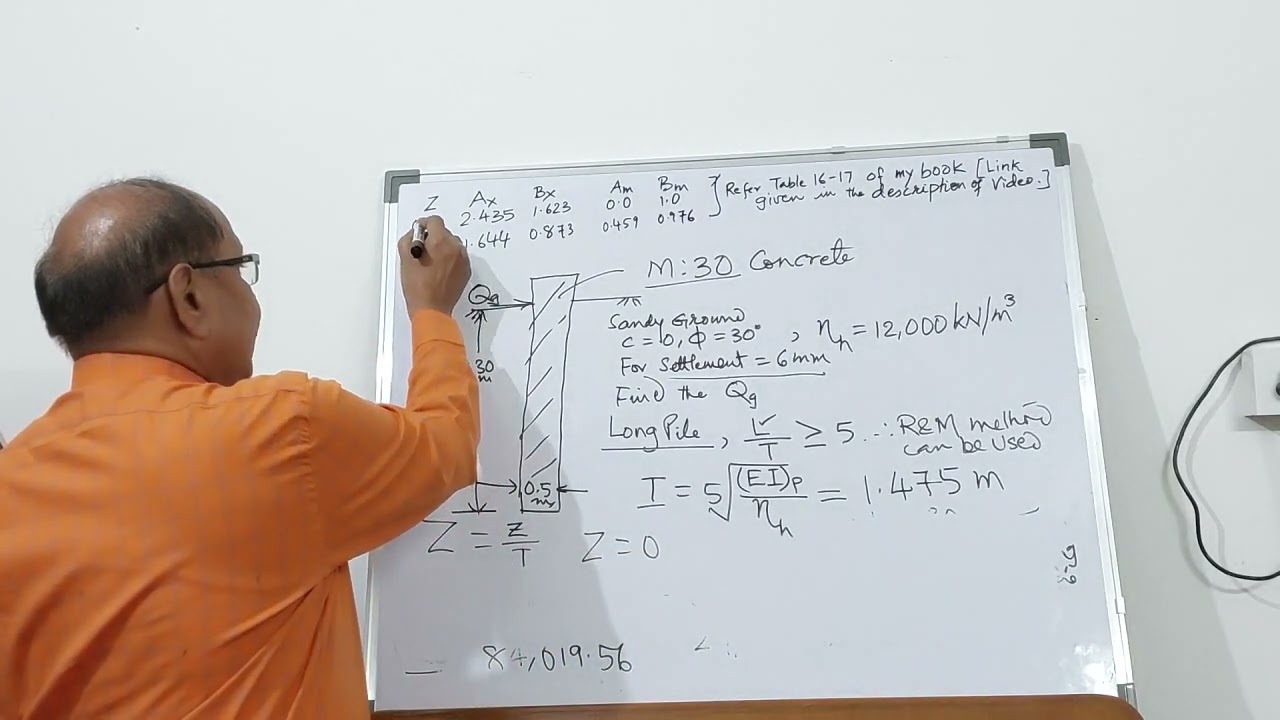 Z Ax Bx Am Bm
2.435 1.623 0.0 1.0
1.644 0.873 0.459 0.976
Refer Table 16-17 of my book [Link
given in the description of Video.]
M:30 Concrete
Qg
30
m
0.5
m
Sandy Ground
c = 0, Φ = 30° , ηh = 12,000 kN/m³
For Settlement = 6mm
Find the Qg
Long Pile, L/T ≥ 5 ∴ R&M method
can be Used
T = 5√(EI)p/ηh = 1.475 m
Z = z/T Z = 0
84,019.56